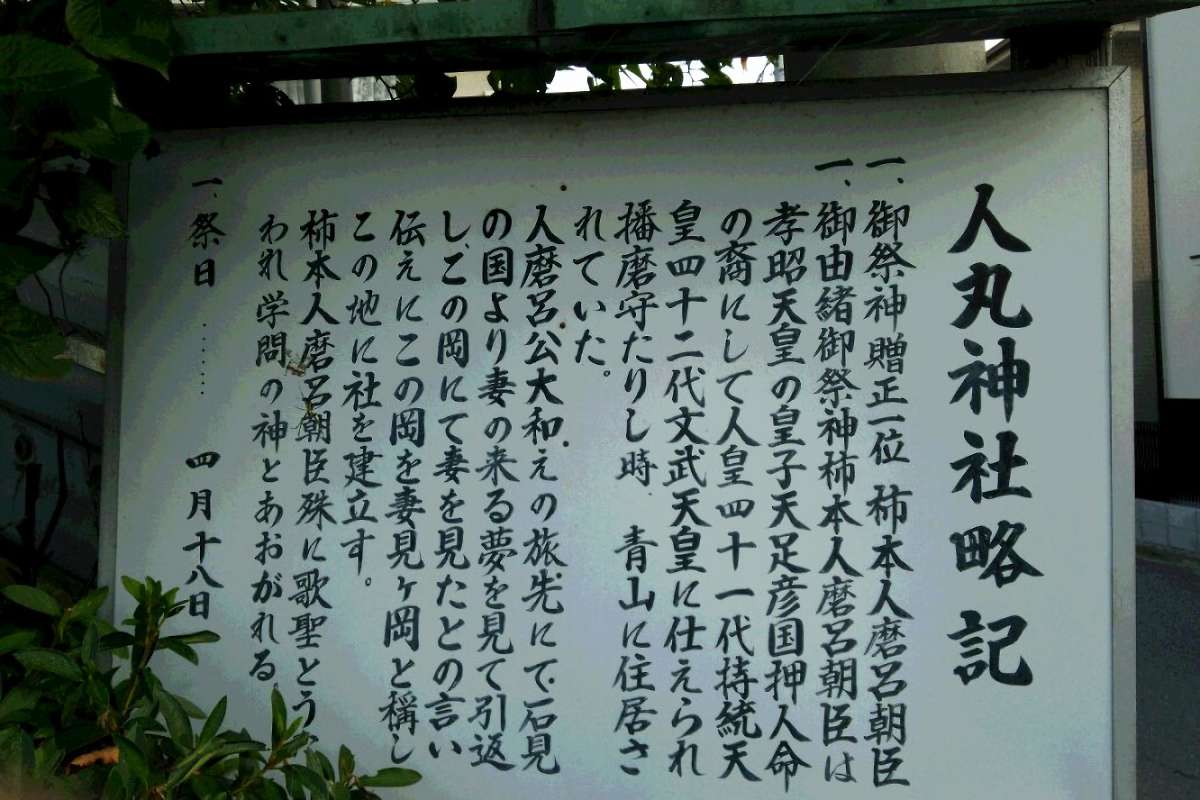 人丸神社略記
一、御祭神贈正一位 柿本人麿呂朝臣
一、御由緒御祭神柿本人磨呂朝臣は
孝昭天皇の皇子天足彦国押人命
の裔にして人皇四十一代持統天
皇四十二代文武天皇に仕えられ
播磨守たりし時 青山に住居さ
れていた。
人磨呂公大和えの旅先にて石見
の国より妻の来る夢を見て引返
し、この岡にて妻を見たとの言い
伝えにこの岡を妻見ヶ岡と稱し
この地に社を建立す。
柿本人磨呂朝臣殊に歌聖とう
われ学問の神とあおがれる
一、祭日 ‥‥‥ 四月十八日